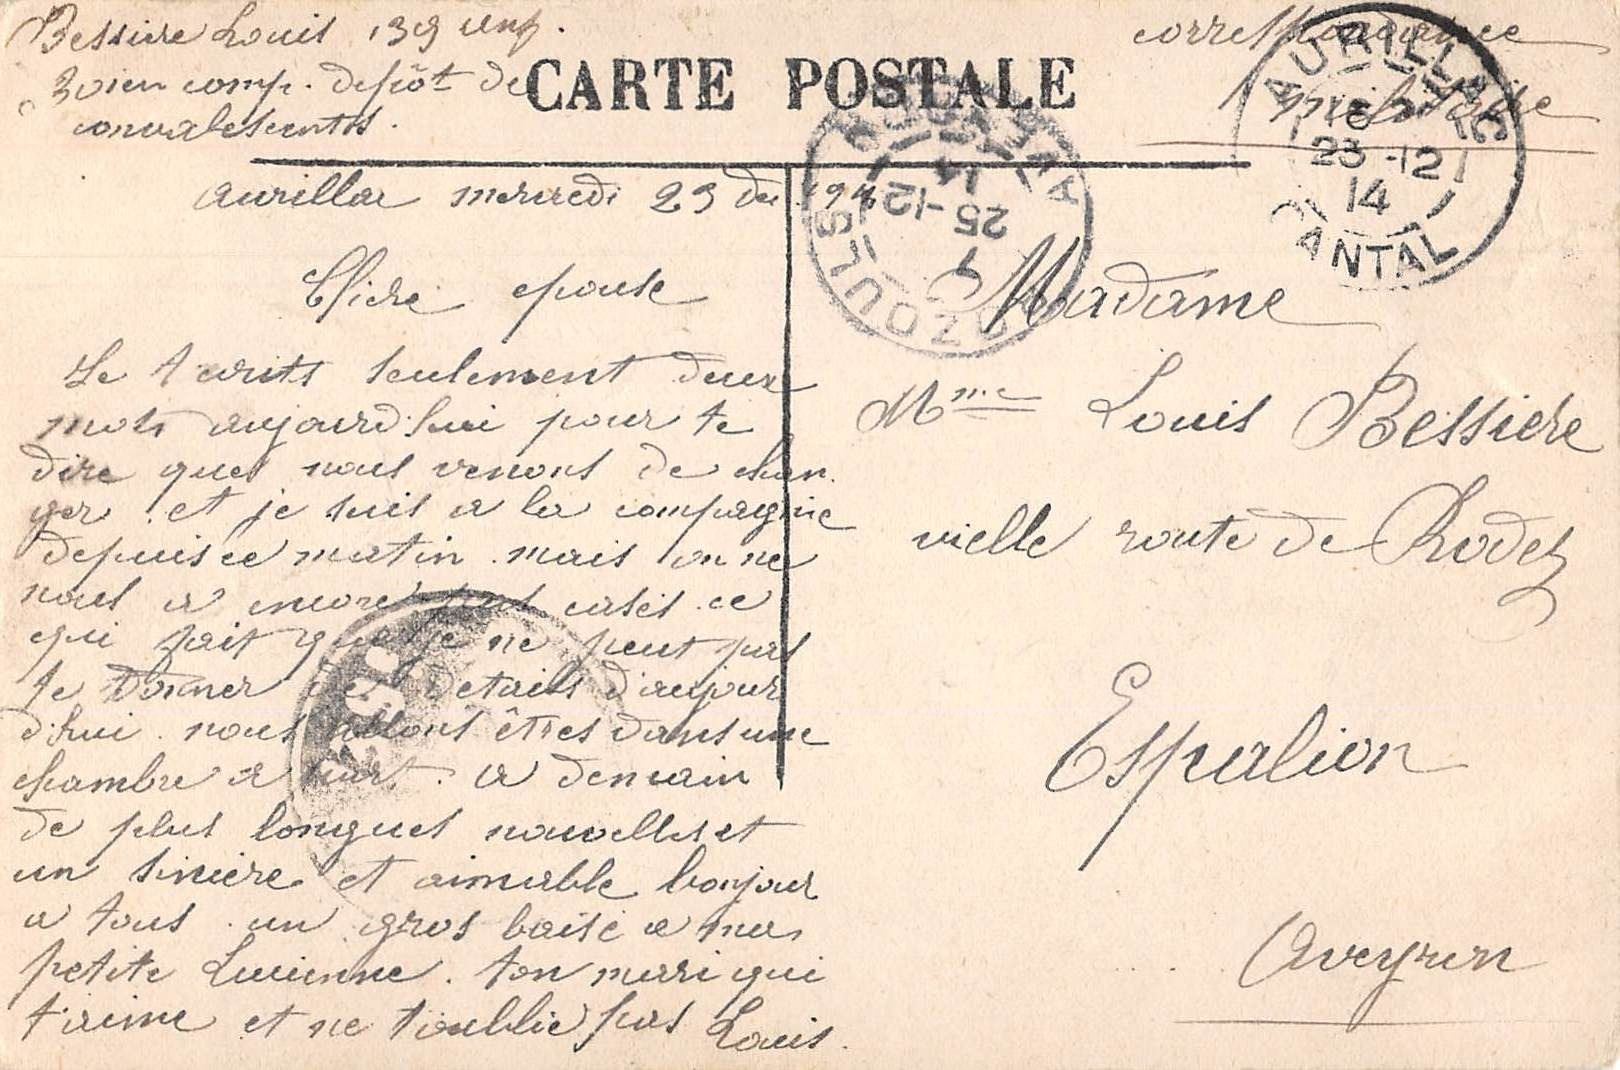 Bessiere Louis 139 inf.
30ien comp. depôt de
convalescents.
CARTE POSTALE
correspondance
militaire
AURILLAC
23 -12
14
CANTAL
AVEYRON
25 -12
14
Aurillac mercredi 23 de 1914
Chere epouse
Je t'ecrits seulement deux
mots aujourd'hui pour te
dire que nous venons de chan
ger et je suis a la compagnie
depuis ce matin mais on ne
nous a encore pas casés ce
qui fait que je ne peut pas
te donner des details d'aujour
d'hui nous allons êtres dans une
chambre a part. a demain
de plus longues nouvelles et
un sincere et aimable bonjour
a tous un gros baisé a ma
petite Lucienne. ton mari qui
t'aime et ne t'oublie pas Louis.
Madame
Mme Louis Bessiere
vielle route de Rodez
Espalion
Aveyron